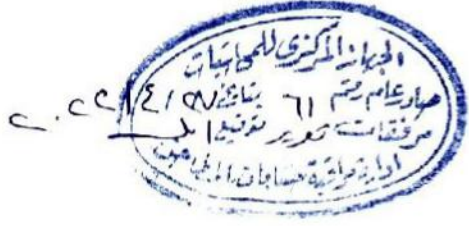 الجهاز المركزى للمحاسبات
صادر عام رقم ٦١ بتاريخ ٢٠٢٢/٤/٢٧
مرفقات توقيع
ادارة مراقبة حسابات